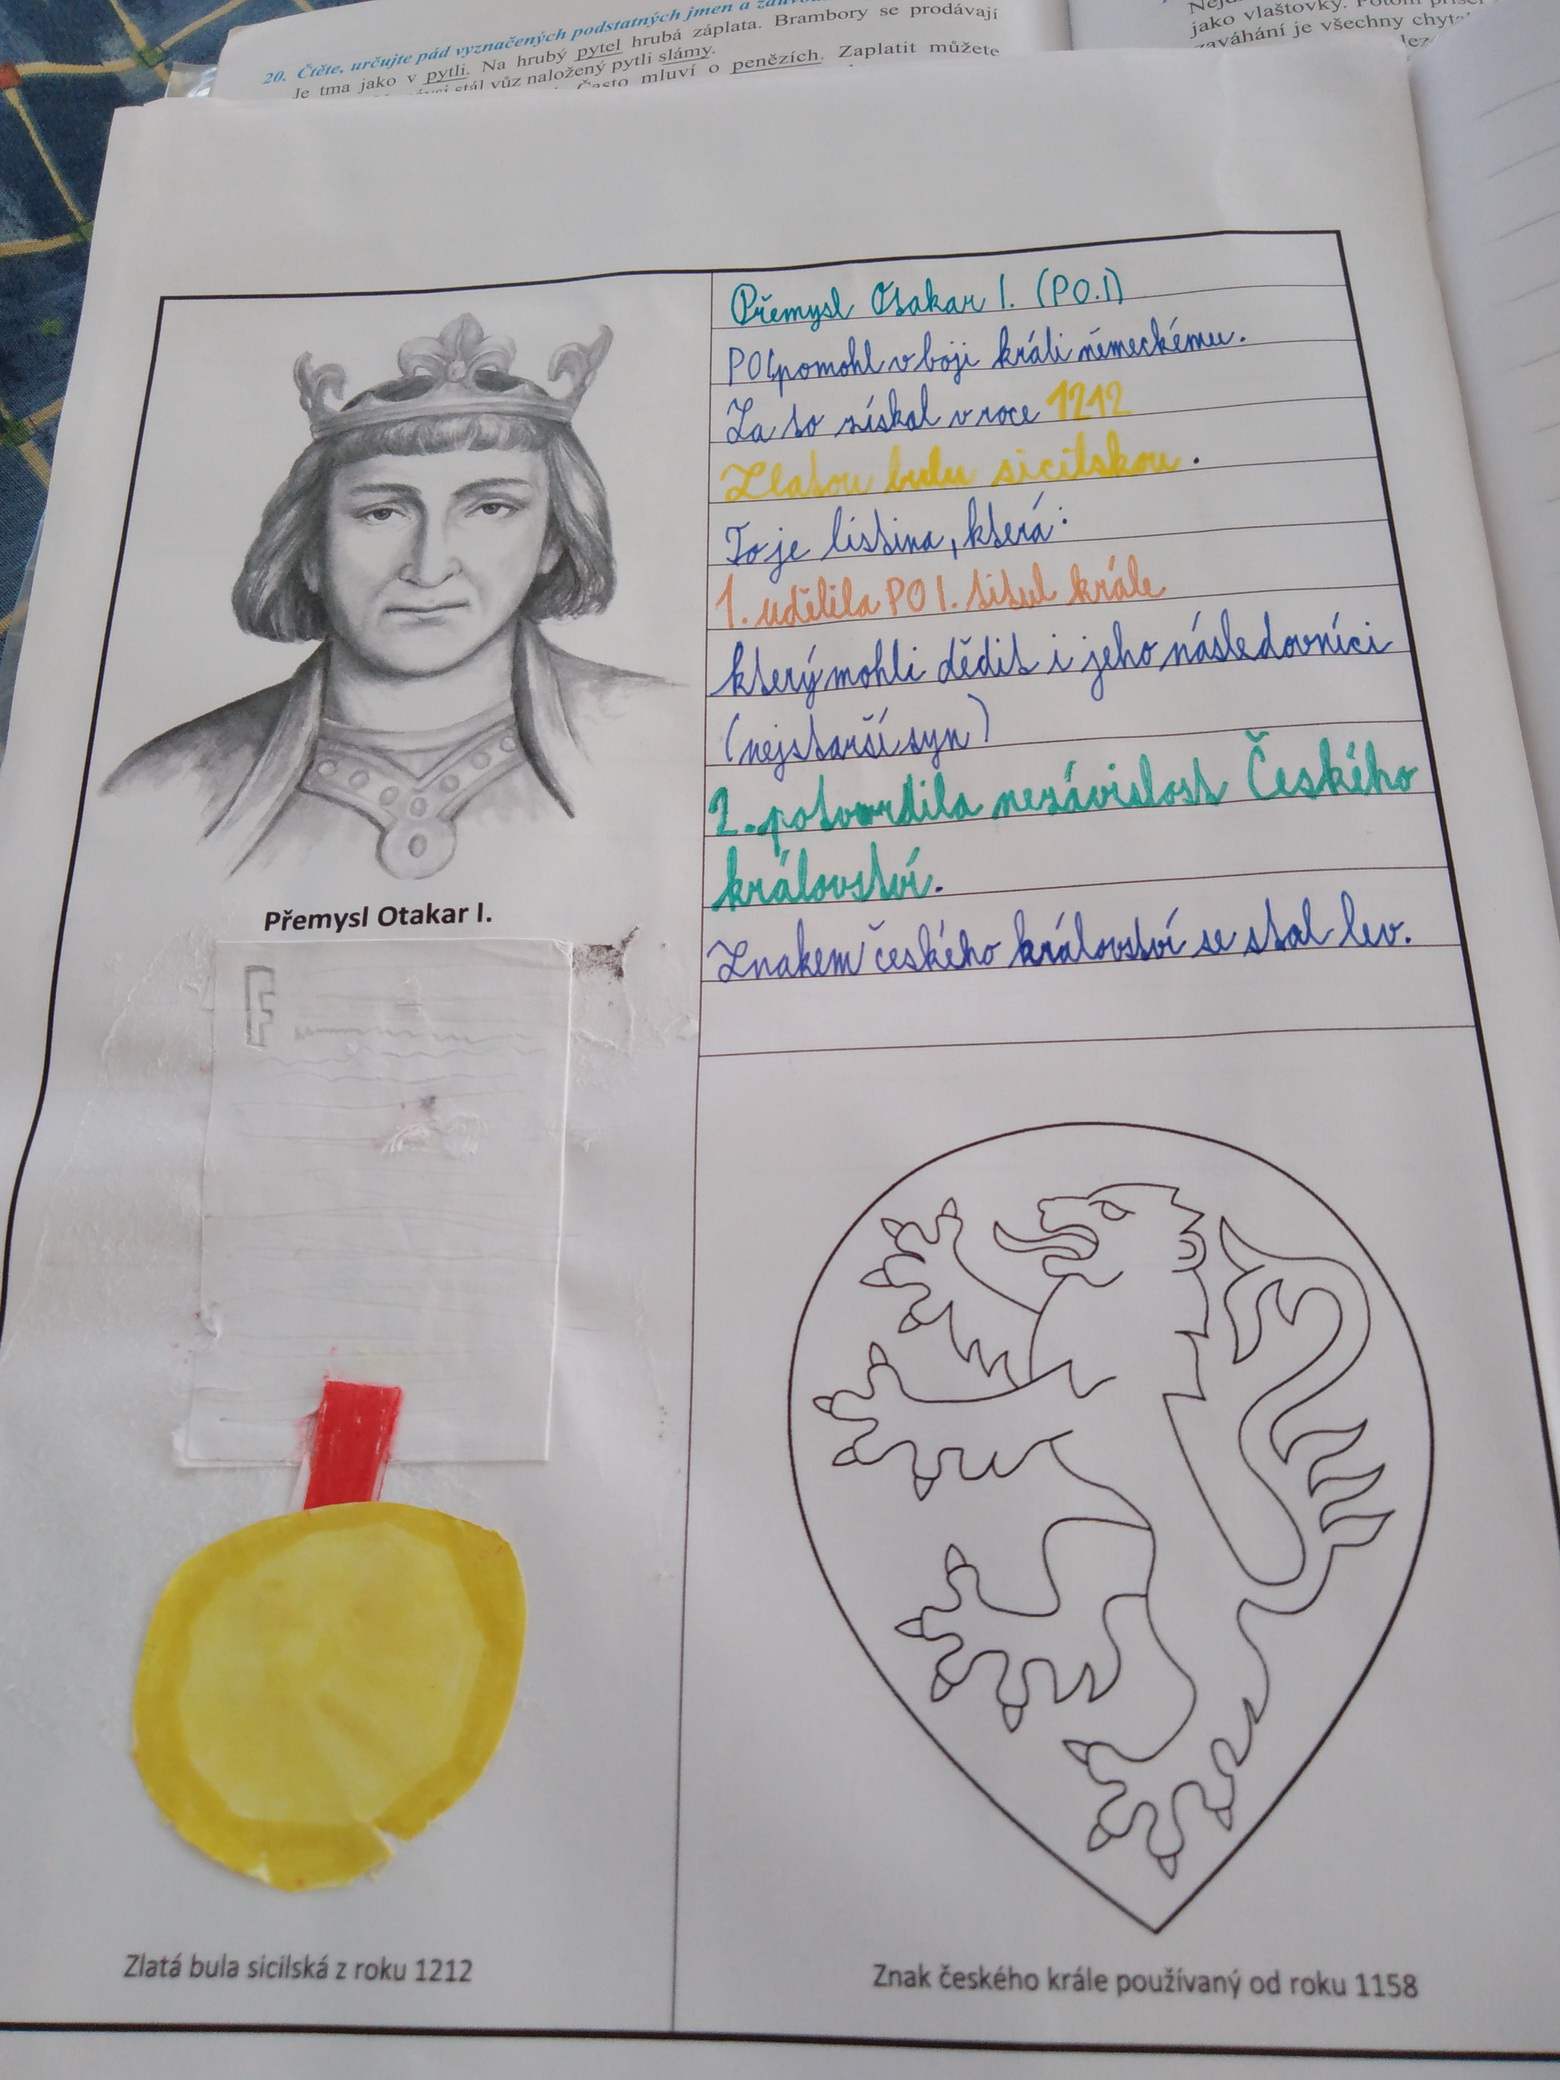 20. Čtěte, určujte pád vyznačených podstatných jmen a
Je tma jako v pytli. Na hrubý pytel hrubá záplata. Brambory se prodávají
stál vůz naložený pytli slámy.
Často mluví o penězích. Zaplatit můžete
jako vlaštovky. Potom
zaváhání je všechny
Přemysl Otakar I. (PO.I)
POI pomohl v boji králi německému.
Za to získal v roce 1212
Zlatou bulu sicilskou.
To je listina, která:
1. udělila PO I. titul krále
který mohli dědit i jeho následovníci
(nejstarší syn)
2. potvrdila nezávislost Českého
království.
Znakem českého království se stal lev.
Přemysl Otakar I.
F
Zlatá bula sicilská z roku 1212
Znak českého krále používaný od roku 1158